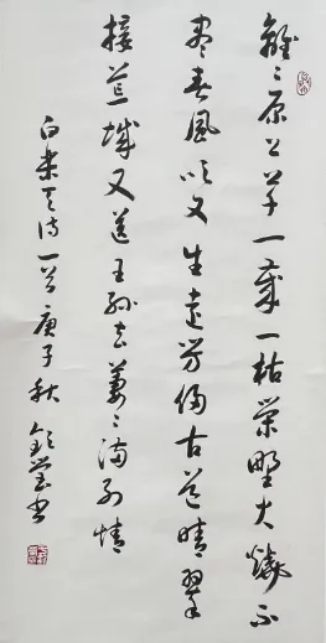 離々原上草一歲一枯榮野火燒不
尽春風吹又生遠芳侵古道晴翠
接荒城又送王孫去萋々滿別情
白樂天诗一首庚子秋書